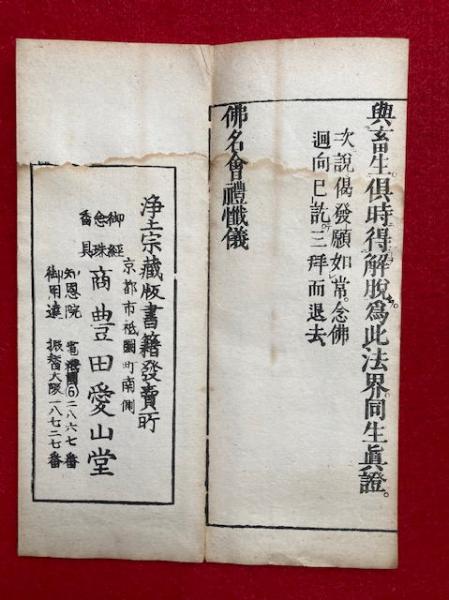 與畜生俱時得解脫為此法界同生眞證。
次說偈發願如常。念佛
迴向已訖三拜而退去
佛名會禮懺儀
淨土宗藏版書籍發賣所
京都市祗園町南側
御經
念珠
香具
商 豊田愛山堂
知恩院
御用達
電話園⑥二八六七番
振替大阪一八七二七番